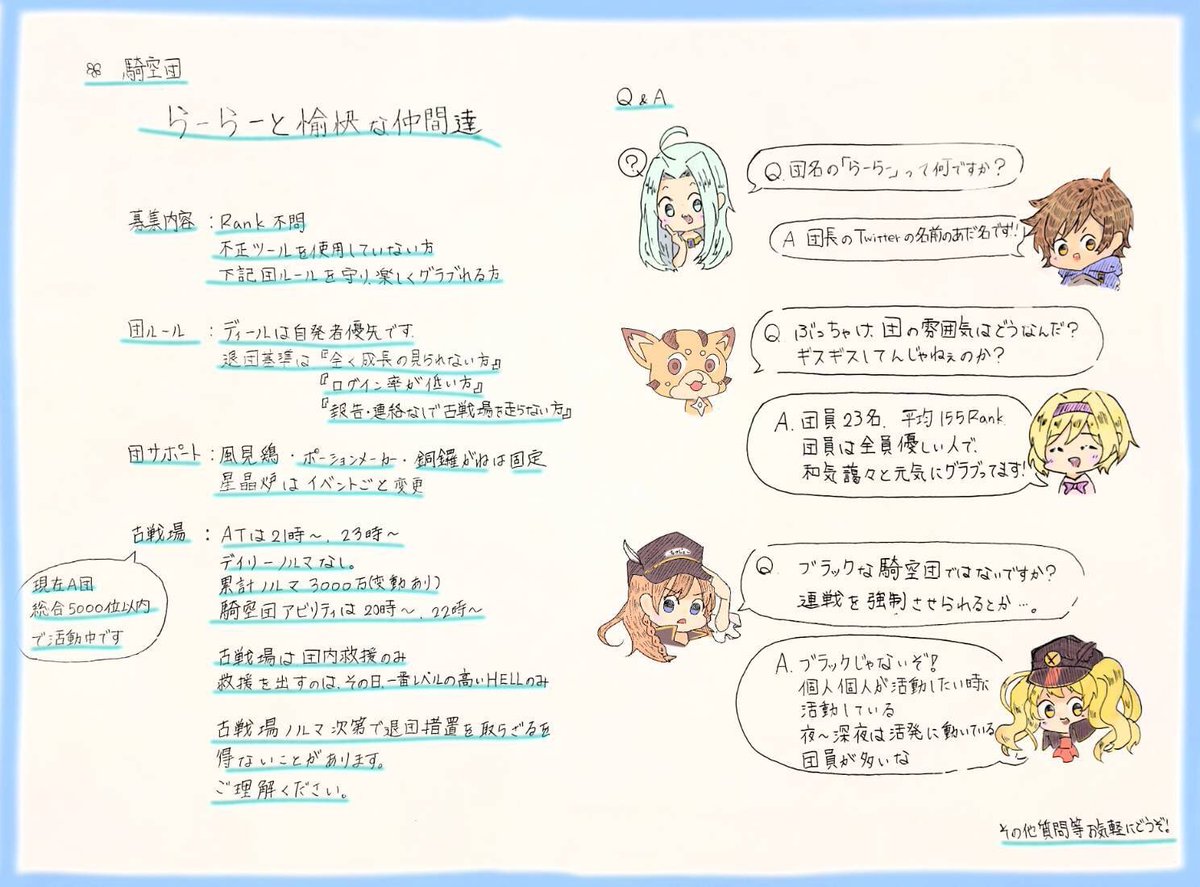 騎空団
らーらーと愉快な仲間達
募集内容：Rank 不問
不正ツールを使用していない方
下記団ルールを守り、楽しくグラブれる方
団ルール：ディールは自発者優先です
退団基準は『全く成長の見られない方』
『ログイン率が低い方』
『報告・連絡なしで古戦場を走らない方』
団サポート：風見鶏・ポーションメーカー・銅鑼がねは固定
星晶炉はイベントごと変更
古戦場：ATは21時〜、23時〜
デイリーノルマなし。
累計ノルマ3000万(変動あり)
騎空団アビリティは20時〜、22時〜
現在A団
総合5000位以内
で活動中です
古戦場は団内救援のみ
救援を出すのは、その日、一番レベルの高いHELLのみ
古戦場ノルマ次第で退団措置を取らざるを
得ないことがあります。
ご理解ください。
Q&A
?
Q.団名の「らーらー」って何ですか？
A 団長のTwitterの名前のあだ名です!!
Q ぶっちゃけ、団の雰囲気はどうなんだ？
ギスギスしてんじゃねぇのか？
A.団員23名、平均155Rank
団員は全員優しい人で、
和気藹々と元気にグラブってます!
Q ブラックな騎空団ではないですか？
連戦を強制させられるとか…。
A.ブラックじゃないぞ!
個人個人が活動したい時に
活動している
夜〜深夜は活発に動いている
団員が多いな
その他質問等お気軽にどうぞ!